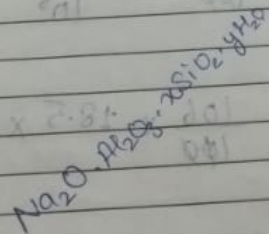 Na₂O.Al₂O₃.xSiO₂.yH₂O